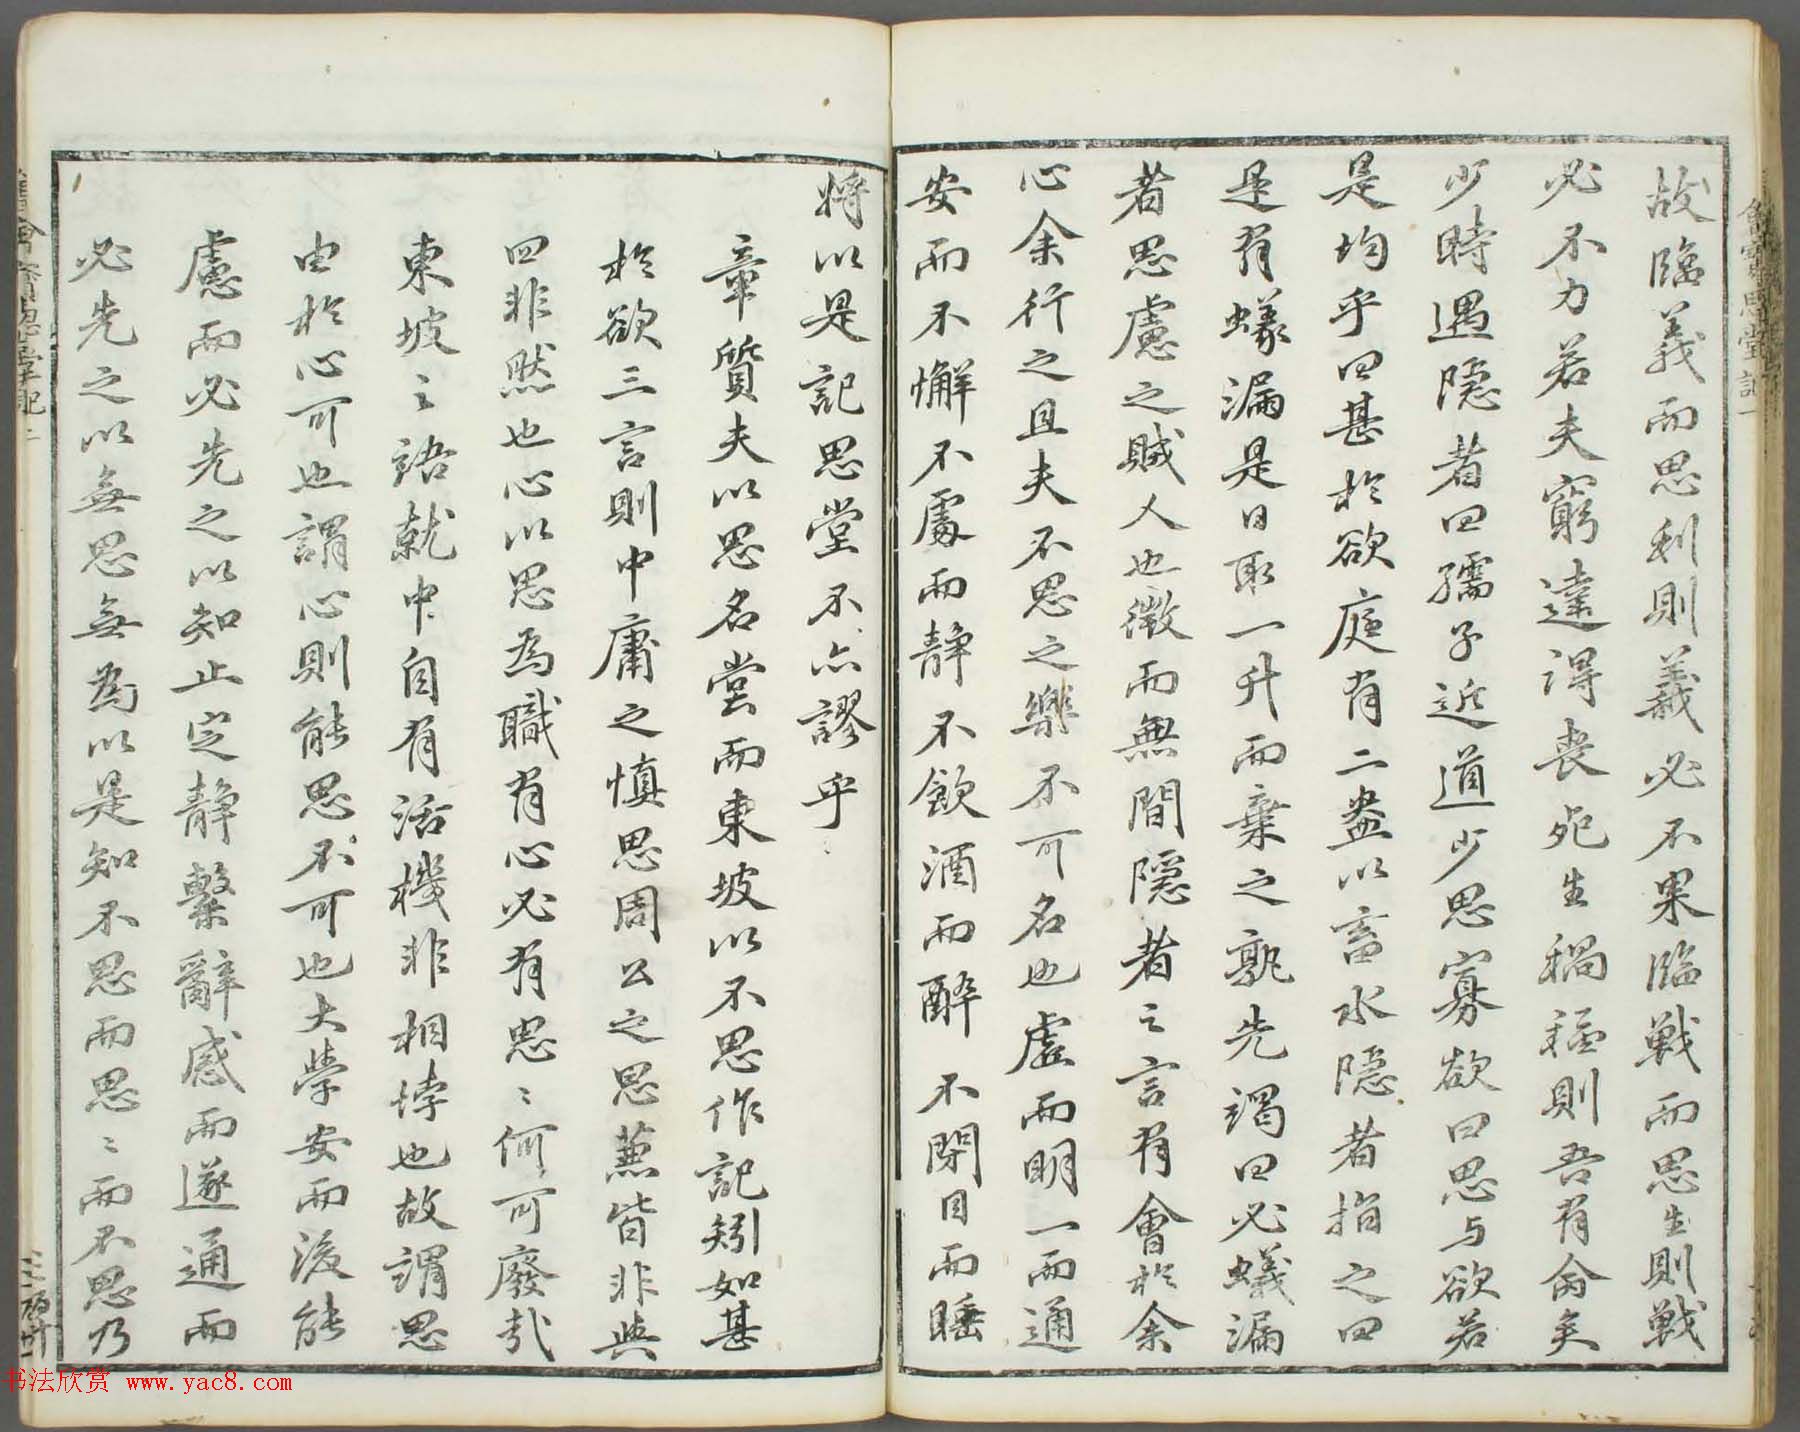 故臨義而思利則義必不果臨戦而思生則戦
必不力若夫窮達得喪死生禍福則吾有命矣
少時遇隠者曰孺子近道少思寡欲曰思与欲若
是均乎曰甚於欲庭有二盎以畜水隠者指之曰
是有蟻漏是日取一升而棄之孰先竭曰必蟻漏
者思慮之賊人也微而無間隠者之言有會於余
心余行之且夫不思之樂不可名也虛而明一而通
安而不懈不處而静不飲酒而醉不閉目而睡
將以是記思堂不亦謬乎
章質夫以思名堂而東坡以不思作記矧如甚
於欲三言則中庸之慎思周公之思蕙皆非與
四非然也心以思為職有心必有思〻何可廢哉
東坡之語就中自有活機非相悖也故謂思
由於心可也謂心則能思不可也大學安而後能
慮而必先之以知止定静繫辭感而遂通而
必先之以無思無為以是知不思而思〻而不思乃
書法欣赏 www.yac8.com